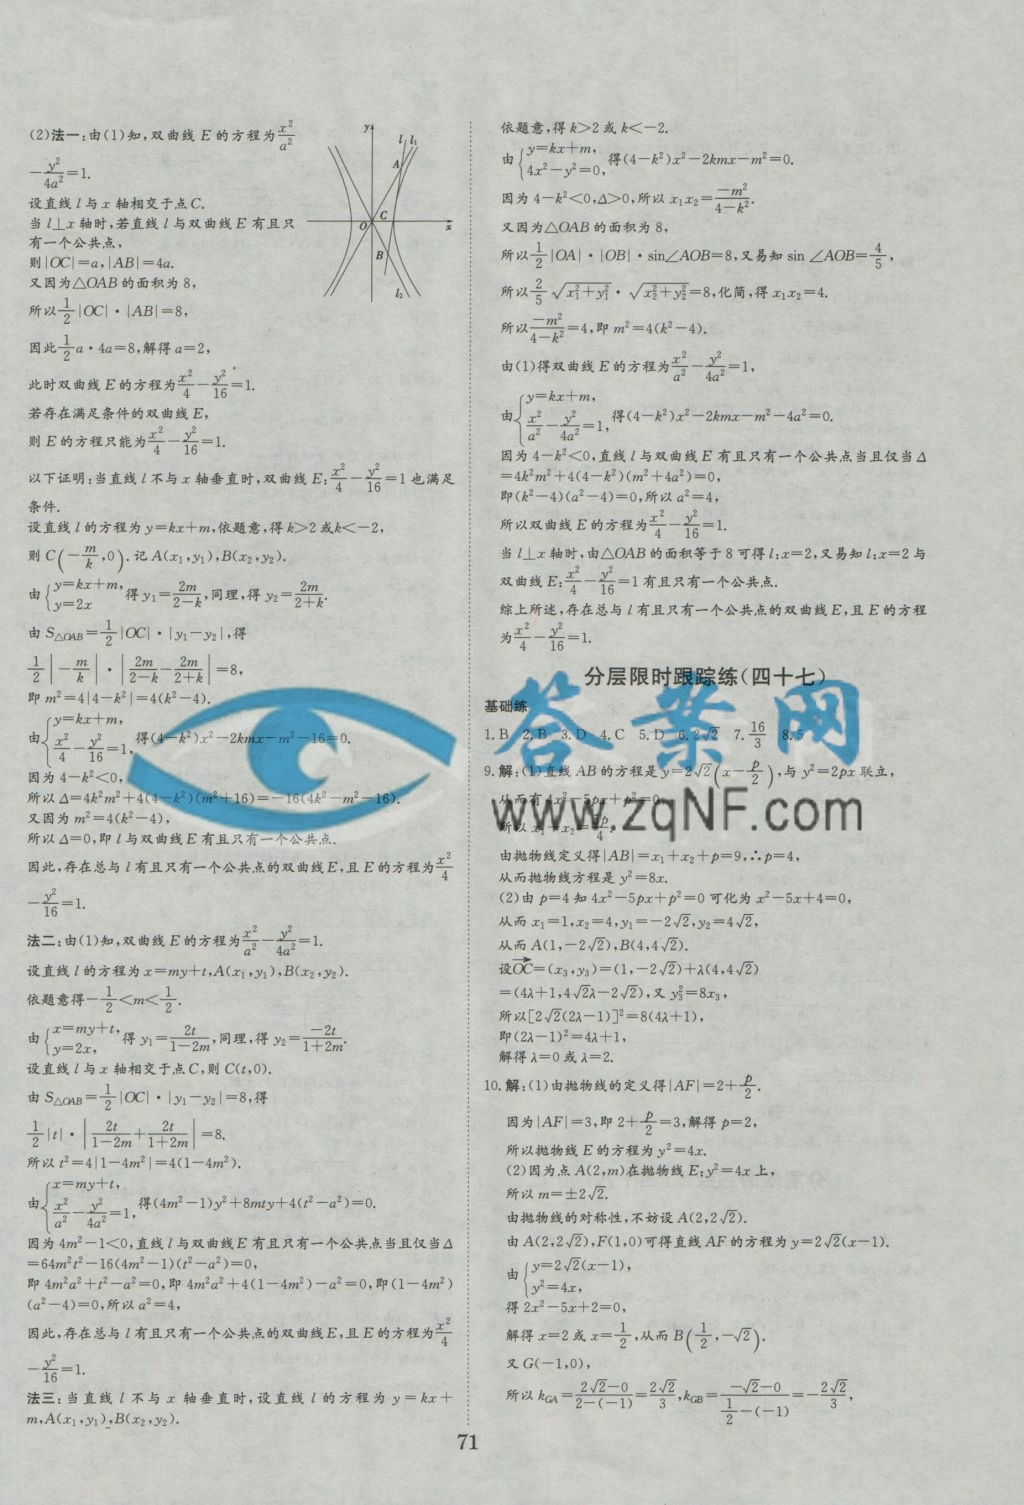 (2)法一:由(1)知,双曲线 E 的方程为 x²/a²
−y²/4a²=1.
设直线 l 与 x 轴相交于点 C.
当 l⊥x 轴时,若直线 l 与双曲线 E 有且只
有一个公共点,
则|OC|=a,|AB|=4a.
又因为△OAB 的面积为 8,
所以 1/2|OC|·|AB|=8,
因此 1/2 a·4a=8,解得 a=2,
此时双曲线 E 的方程为 x²/4−y²/16=1.
若存在满足条件的双曲线 E,
则 E 的方程只能为 x²/4−y²/16=1.
以下证明:当直线 l 不与 x 轴垂直时,双曲线 E:x²/4−y²/16=1 也满足
条件.
设直线 l 的方程为 y=kx+m,依题意,得 k>2 或 k<−2,
则 C(−m/k,0).记 A(x₁,y₁),B(x₂,y₂).
由{y=kx+m, y=2x 得 y₁=2m/(2−k),同理,得 y₂=2m/(2+k).
由 S△OAB=1/2|OC|·|y₁−y₂|,得
1/2|−m/k|·|2m/(2−k)−2m/(2+k)|=8,
即 m²=4|4−k²|=4(k²−4).
由{y=kx+m, x²/4−y²/16=1, 得(4−k²)x²−2kmx−m²−16=0.
因为 4−k²<0,
所以 Δ=4k²m²+4(4−k²)(m²+16)=−16(4k²−m²−16).
又因为 m²=4(k²−4),
所以 Δ=0,即 l 与双曲线 E 有且只有一个公共点.
因此,存在总与 l 有且只有一个公共点的双曲线 E,且 E 的方程为 x²/4
−y²/16=1.
法二:由(1)知,双曲线 E 的方程为 x²/a²−y²/4a²=1.
设直线 l 的方程为 x=my+t,A(x₁,y₁),B(x₂,y₂).
依题意得−1/2<m<1/2.
由{x=my+t, y=2x, 得 y₁=2t/(1−2m),同理,得 y₂=−2t/(1+2m).
设直线 l 与 x 轴相交于点 C,则 C(t,0).
由 S△OAB=1/2|OC|·|y₁−y₂|=8,得
1/2|t|·|2t/(1−2m)+2t/(1+2m)|=8.
所以 t²=4|1−4m²|=4(1−4m²).
由{x=my+t, x²/a²−y²/4a²=1, 得(4m²−1)y²+8mty+4(t²−a²)=0.
因为 4m²−1<0,直线 l 与双曲线 E 有且只有一个公共点当且仅当 Δ
=64m²t²−16(4m²−1)(t²−a²)=0,
即 4m²a²+t²−a²=0,即 4m²a²+4(1−4m²)−a²=0,即(1−4m²)
(a²−4)=0,所以 a²=4,
因此,存在总与 l 有且只有一个公共点的双曲线 E,且 E 的方程为 x²/4
−y²/16=1.
法三:当直线 l 不与 x 轴垂直时,设直线 l 的方程为 y=kx+
m,A(x₁,y₁),B(x₂,y₂).
y
l l₁
A
O C x
B
l₂
依题意,得 k>2 或 k<−2.
由{y=kx+m, 4x²−y²=0, 得(4−k²)x²−2kmx−m²=0.
因为 4−k²<0,Δ>0,所以 x₁x₂=−m²/(4−k²).
又因为△OAB 的面积为 8,
所以 1/2|OA|·|OB|·sin∠AOB=8,又易知 sin ∠AOB=4/5,
所以 2/5 √(x₁²+y₁²)·√(x₂²+y₂²)=8,化简,得 x₁x₂=4.
所以 −m²/(4−k²)=4,即 m²=4(k²−4).
由(1)得双曲线 E 的方程为 x²/a²−y²/4a²=1,
由{y=kx+m, x²/a²−y²/4a²=1, 得(4−k²)x²−2kmx−m²−4a²=0.
因为 4−k²<0,直线 l 与双曲线 E 有且只有一个公共点当且仅当 Δ
=4k²m²+4(4−k²)(m²+4a²)=0,
即(k²−4)(a²−4)=0,所以 a²=4,
所以双曲线 E 的方程为 x²/4−y²/16=1.
当 l⊥x 轴时,由△OAB 的面积等于 8 可得 l:x=2,又易知 l:x=2 与
双曲线 E:x²/4−y²/16=1 有且只有一个公共点.
综上所述,存在总与 l 有且只有一个公共点的双曲线 E,且 E 的方程
为 x²/4−y²/16=1.
分层限时跟踪练(四十七)
基础练
1.B 2.B 3.D 4.C 5.D 6.2√2 7.16/3 8.5
9.解:(1)直线 AB 的方程是 y=2√2(x−p/2),与 y²=2px 联立,
从而有 4x²−5px+p²=0,
所以 x₁+x₂=5p/4,
由抛物线定义得|AB|=x₁+x₂+p=9,∴p=4,
从而抛物线方程是 y²=8x.
(2)由 p=4 知 4x²−5px+p²=0 可化为 x²−5x+4=0,
从而 x₁=1,x₂=4,y₁=−2√2,y₂=4√2,
从而 A(1,−2√2),B(4,4√2).
设OC→=(x₃,y₃)=(1,−2√2)+λ(4,4√2)
=(4λ+1,4√2λ−2√2),又 y₃²=8x₃,
所以[2√2(2λ−1)]²=8(4λ+1),
即(2λ−1)²=4λ+1,
解得 λ=0 或 λ=2.
10.解:(1)由抛物线的定义得|AF|=2+p/2.
因为|AF|=3,即 2+p/2=3,解得 p=2,
所以抛物线 E 的方程为 y²=4x.
(2)因为点 A(2,m)在抛物线 E:y²=4x 上,
所以 m=±2√2.
由抛物线的对称性,不妨设 A(2,2√2).
由 A(2,2√2),F(1,0)可得直线 AF 的方程为 y=2√2(x−1).
由{y=2√2(x−1), y²=4x,
得 2x²−5x+2=0,
解得 x=2 或 x=1/2,从而 B(1/2,−√2).
又 G(−1,0),
所以 k_GA=(2√2−0)/(2−(−1))=2√2/3,k_GB=(−√2−0)/(1/2−(−1))=−2√2/3,
71
答案网
www.zqNF.com